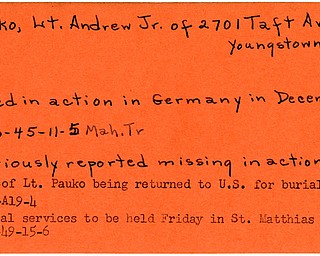 ko, Lt. Andrew Jr. of 2701 Taft Av
Youngstown
ed in action in Germany in Decem
-45-11-5 Mah. Tr
iously reported missing in action
of Lt. Pauko being returned to U.S. for burial
-A19-4
al services to be held Friday in St. Matthias
-49-15-6